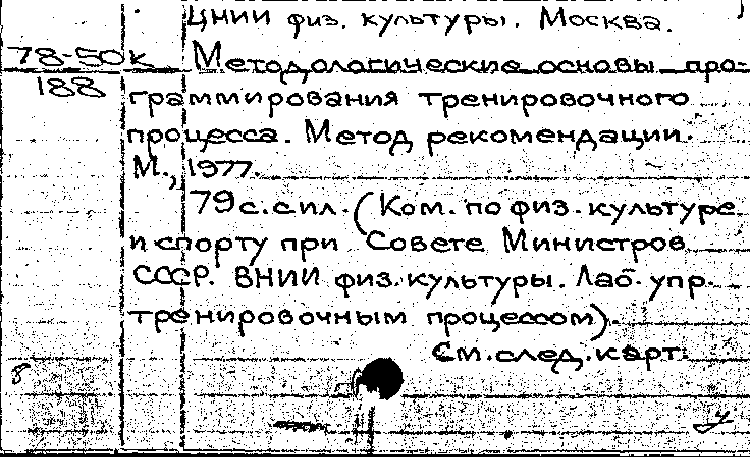 ЦНИИ физ. культуры. Москва.
78-50к Методологические основы про-
188 граммирования тренировочного
процесса. Метод рекомендации.
М., 1977.
79 с. с ил. (Ком. по физ. культуре
и спорту при Совете Министров
СССР. ВНИИ физ. культуры. Лаб. упр.
тренировочным процессом).
См. след. карт.
8